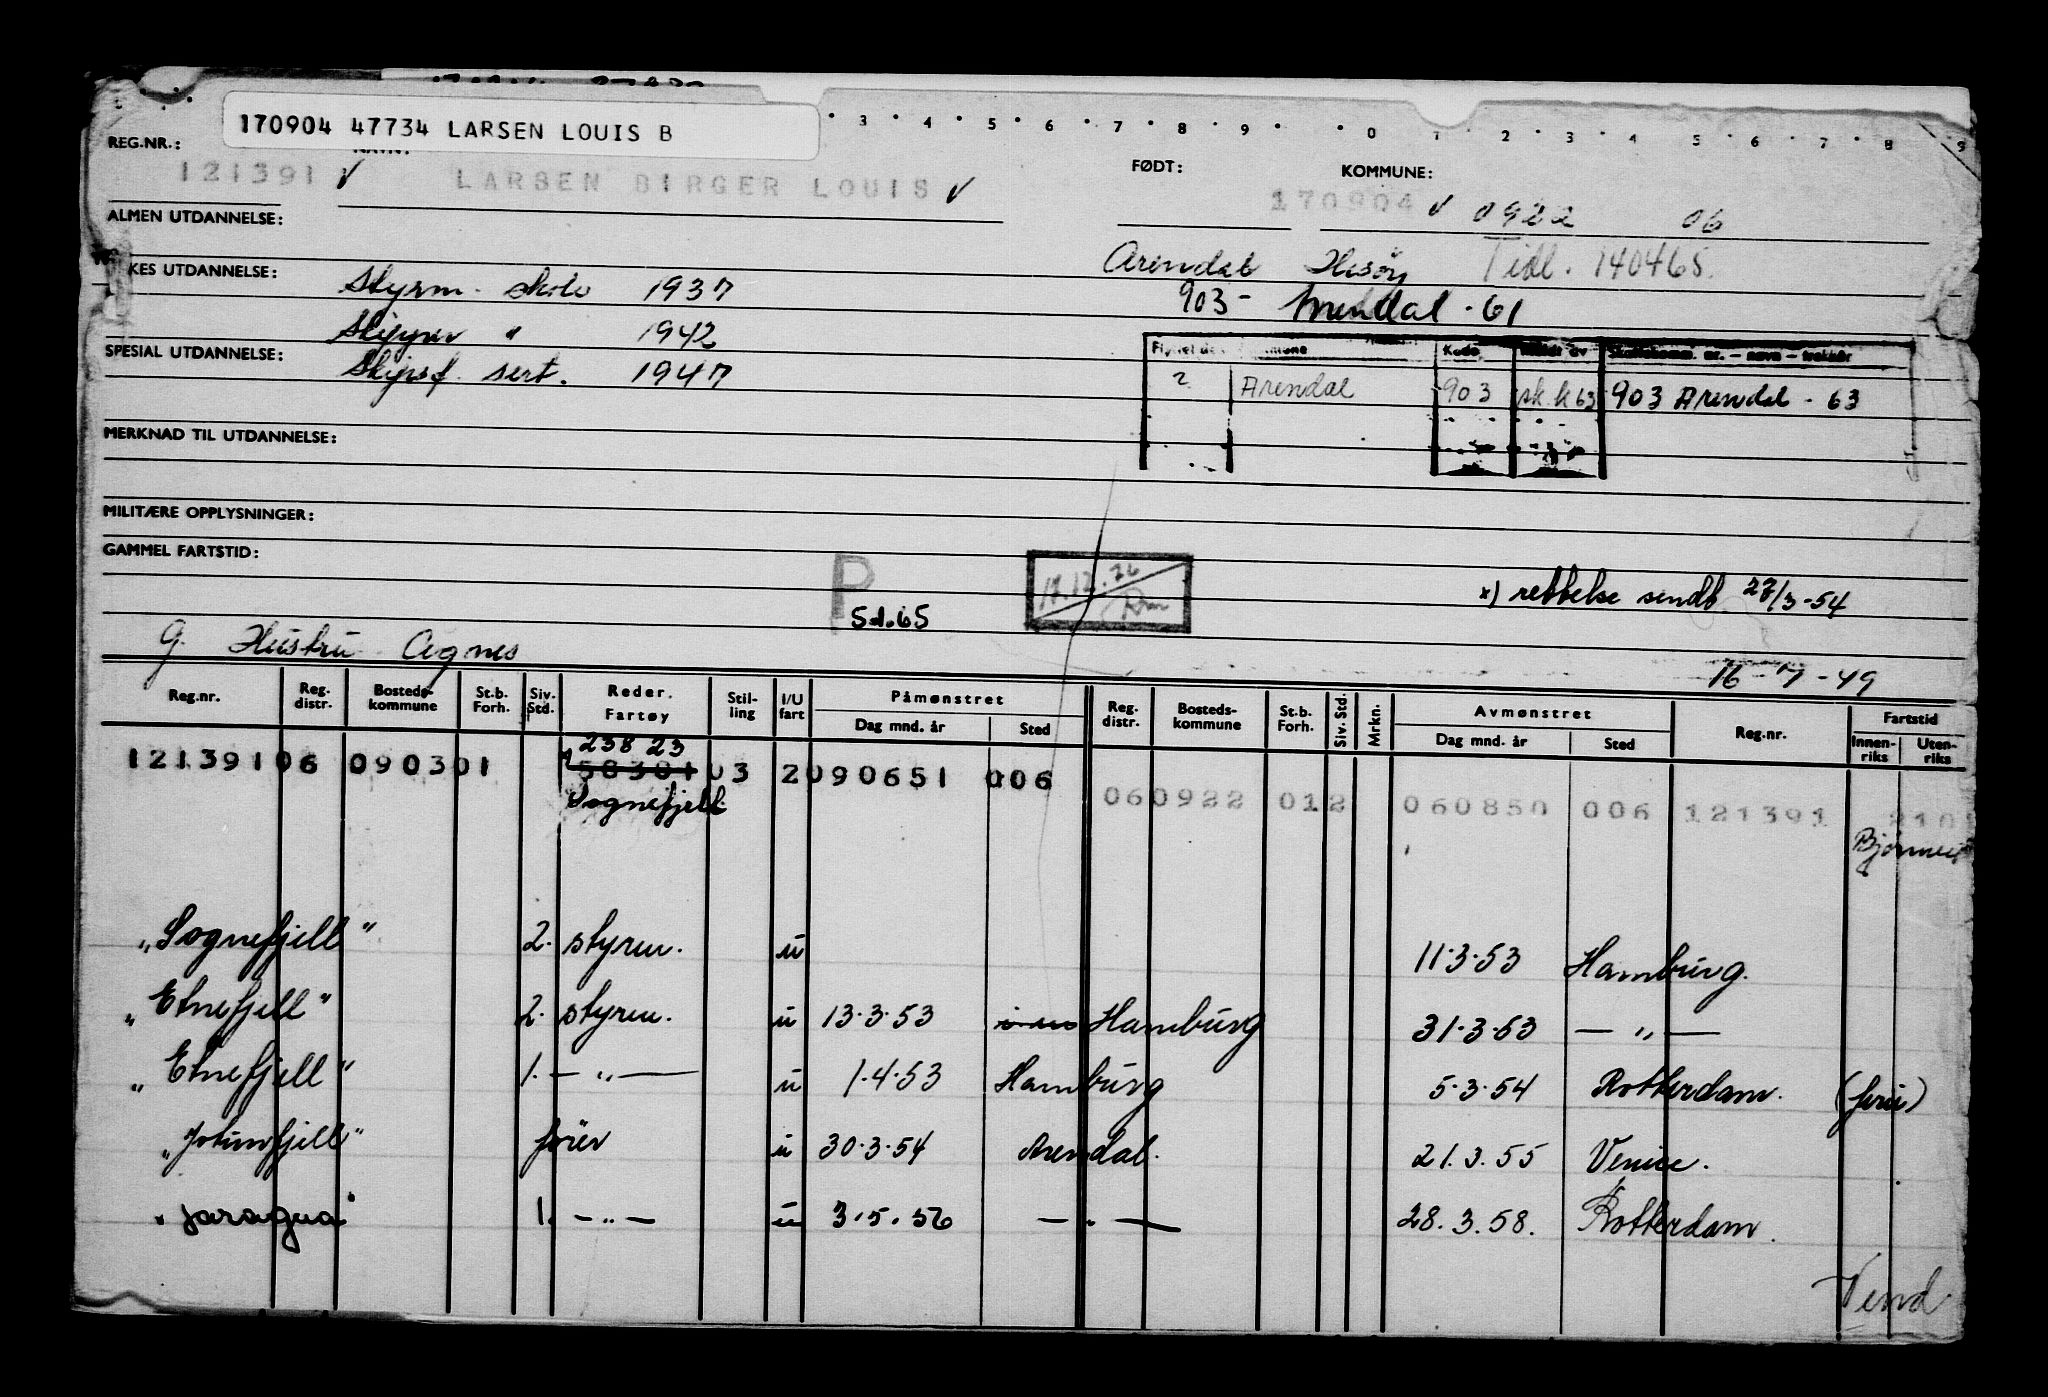 170904 47734 LARSEN LOUIS B
3 4 5 6 7 8 9 0 1 2 3 4 5 6 7 8 9
REG.NR.: FØDT: KOMMUNE:
121391 LARSEN BIRGER LOUIS 170904 0922 06
ALMEN UTDANNELSE:
Arendal Hisøy Tidl. 140465
KES UTDANNELSE: Styrm. skole 1937
903 - Arendal - 61
Skipper " 1942
SPESIAL UTDANNELSE: Skipsf. sert. 1947
Kode Skattekomm. nr. – navn – trekkår
2 Arendal 903 sk.k 63 903 Arendal - 63
MERKNAD TIL UTDANNELSE:
MILITÆRE OPPLYSNINGER:
GAMMEL FARTSTID:
P
5.1.65
x) rettelse sendt 27/3-54
G. Hustru Agnes
16-7-49
Reg.nr. Reg. distr. Bosteds-kommune St.b. Forh. Siv. Std. Reder. Fartøy Stil-ling I/U fart Påmønstret Dag mnd. år Sted Reg. distr. Bosteds-kommune St.b. Forh. Siv. Std. Mrkn. Avmønstret Dag mnd. år Sted Reg.nr. Fartstid Innen-riks Uten-riks
238 23
121391 06 0903 01 58301 03 2 090651 006
060922 012 060850 006 121391 210
Sognefjell
"Sognefjell" 2. styrm. u 11.3.53 Hamburg.
"Etnefjell" 2. styrm. u 13.3.53 Hamburg 31.3.53 — " —
"Etnefjell" 1. — " — u 1.4.53 Hamburg 5.3.54 Rotterdam. (ferie)
"Jotunfjell" fører u 30.3.54 Arendal. 21.3.55 Venice.
"Jaragua" 1. — " — u 3.5.56 — " — 28.3.58. Rotterdam.
Vend